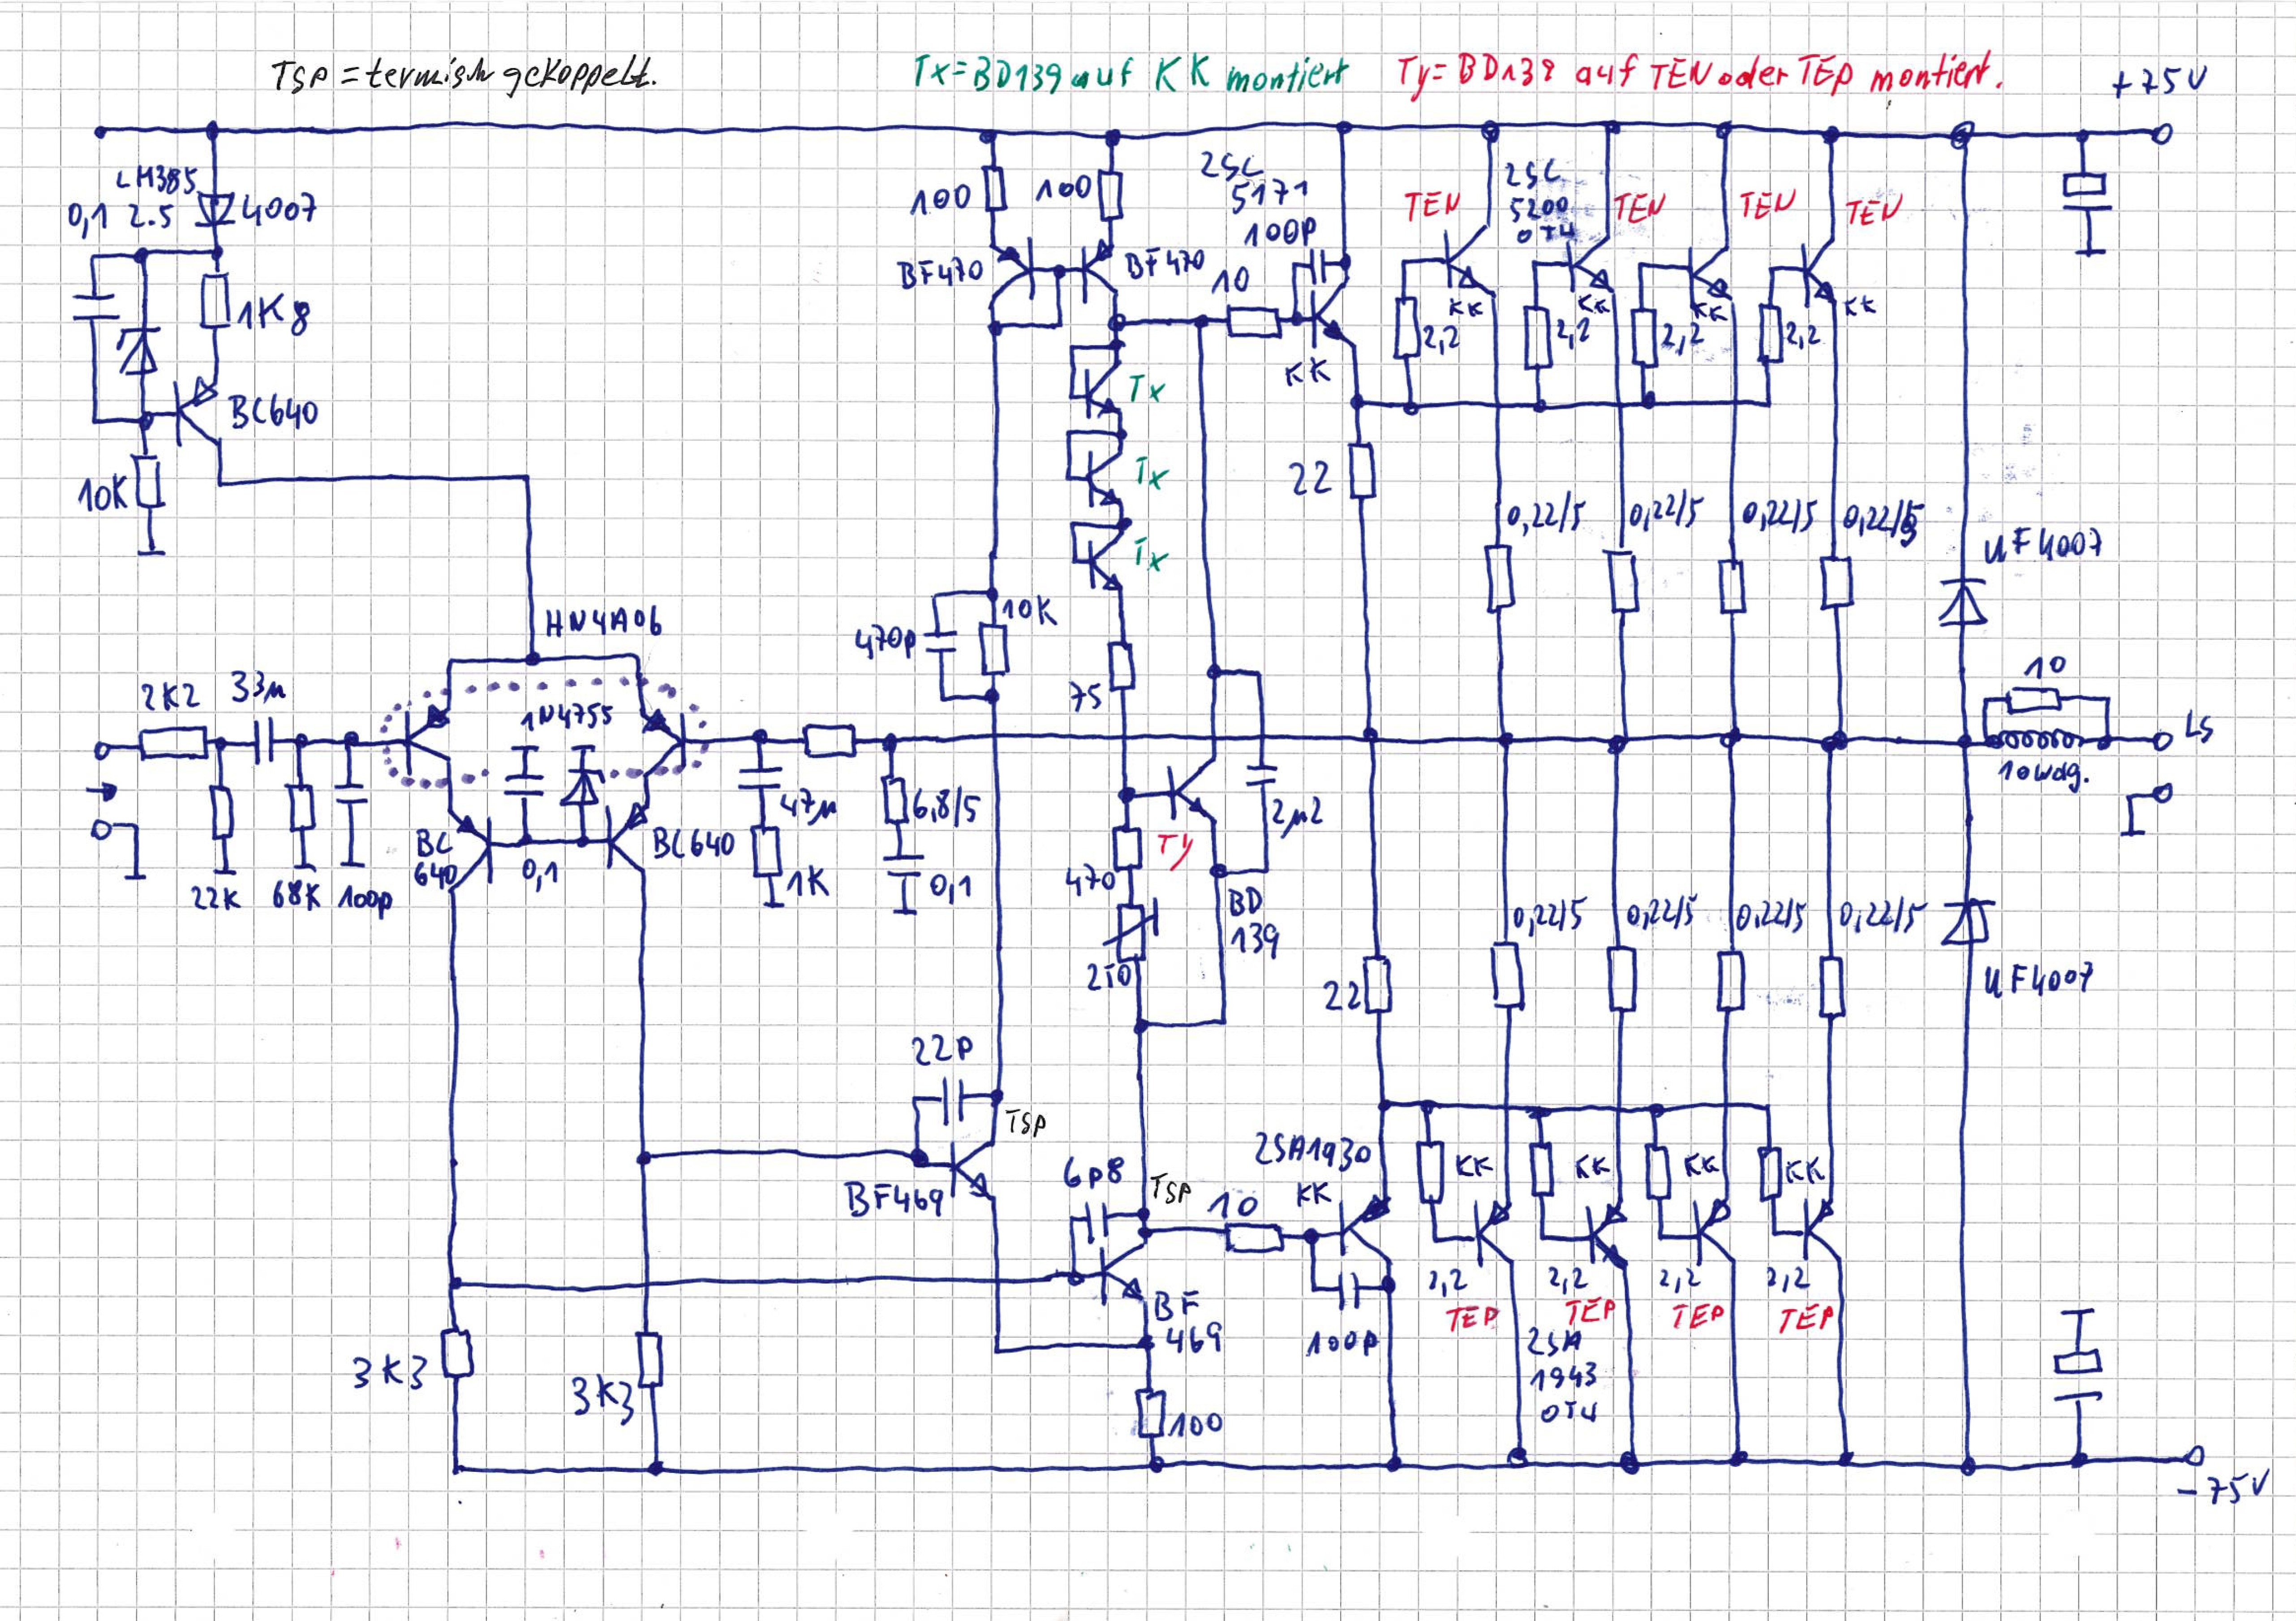 TSP = termisch gekoppelt.
Tx = BD139 auf KK montiert
Ty = BD139 auf TEN oder TEP montiert.
+75V
LM385
0,1 2.5
4007
1K8
BC640
10K
100
100
BF470
BF470
2SC
5171
100p
10
KK
TEN
2SC
5200
OT4
TEN
TEN
TEN
KK
KK
KK
KK
2,2
2,2
2,2
2,2
Tx
Tx
Tx
22
0,22/5
0,22/5
0,22/5
0,22/5
UF4007
HN4A06
10K
470p
75
2K2
33µ
1N4755
10
LS
10 Wdg.
BC
640
0,1
BC640
47µ
1K
6,8/5
0,1
22K
68K
100p
Ty
2µ2
470
BD
139
250
22
0,22/5
0,22/5
0,22/5
0,22/5
UF4007
22P
TSP
BF469
6p8
TSP
10
2SA1930
KK
KK
KK
KK
KK
2,2
2,2
2,2
2,2
TEP
TEP
TEP
TEP
BF
469
100p
2SA
1943
OT4
3K3
3K3
100
-75V